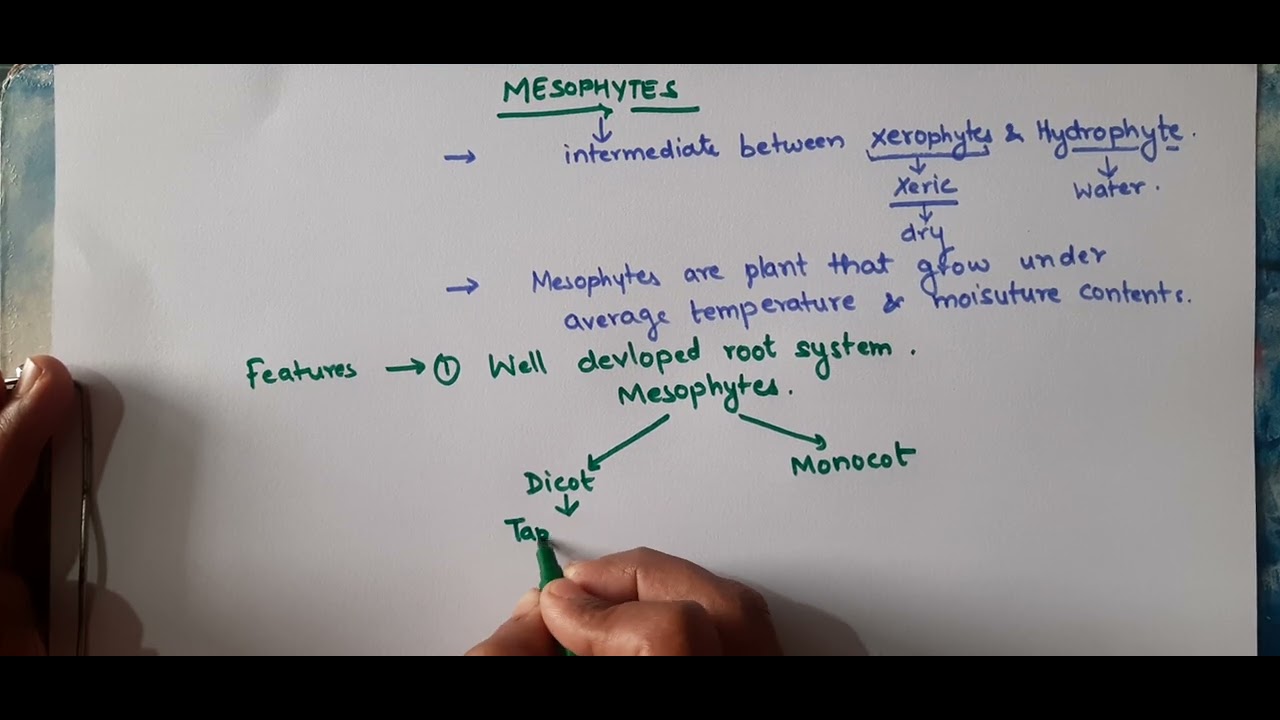 MESOPHYTES
→ intermediate between xerophytes & Hydrophyte.
Xeric water.
dry
→ Mesophytes are plant that grow under
average temperature & moisuture contents.
Features → ① Well devloped root system.
Mesophytes.
Dicot Monocot
Tap